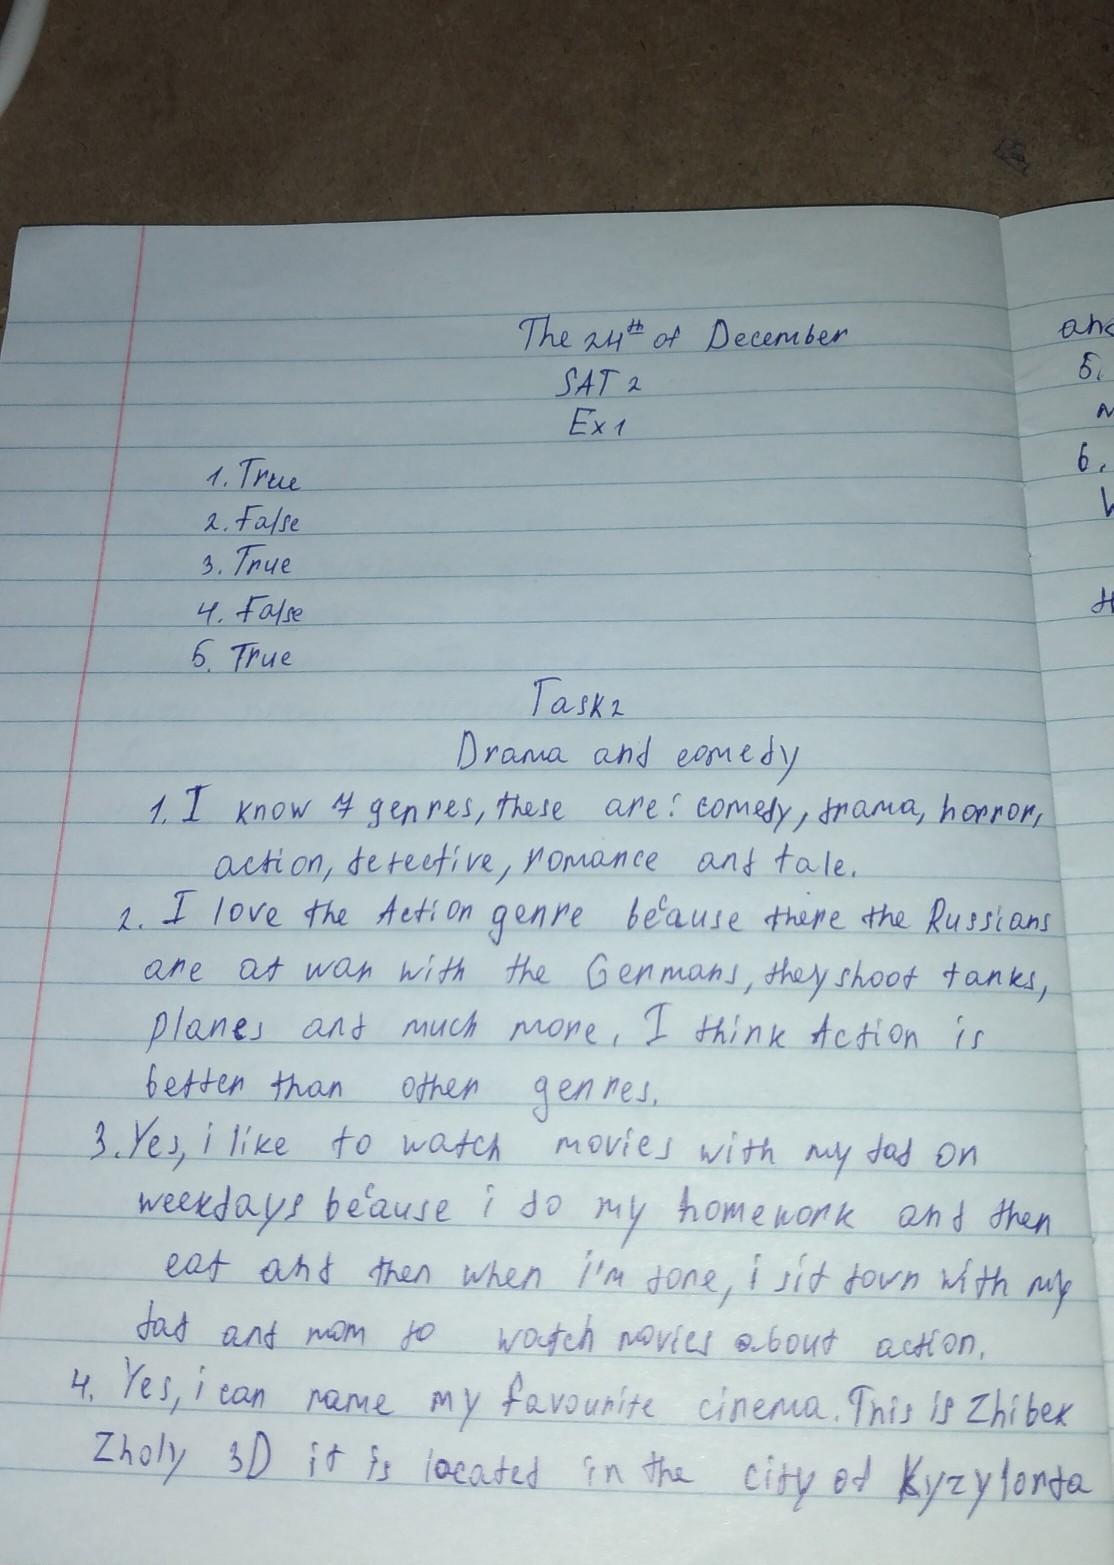 The 24th of December
SAT 2
Ex 1
1. True
2. False
3. True
4. False
5. True
Task 2
Drama and comedy
1. I know 7 genres, these are: comedy, drama, horror,
action, detective, romance and tale.
2. I love the Action genre because there the Russians
are at war with the Germans, they shoot tanks,
planes and much more, I think Action is
better than other genres.
3. Yes, i like to watch movies with my dad on
weekdays because i do my homework and then
eat and then when i'm done, i sit down with my
dad and mom to watch movies about action.
4. Yes, i can name my favourite cinema. This is Zhibek
Zholy 3D it is located in the city of Kyzylorda
5.
6.